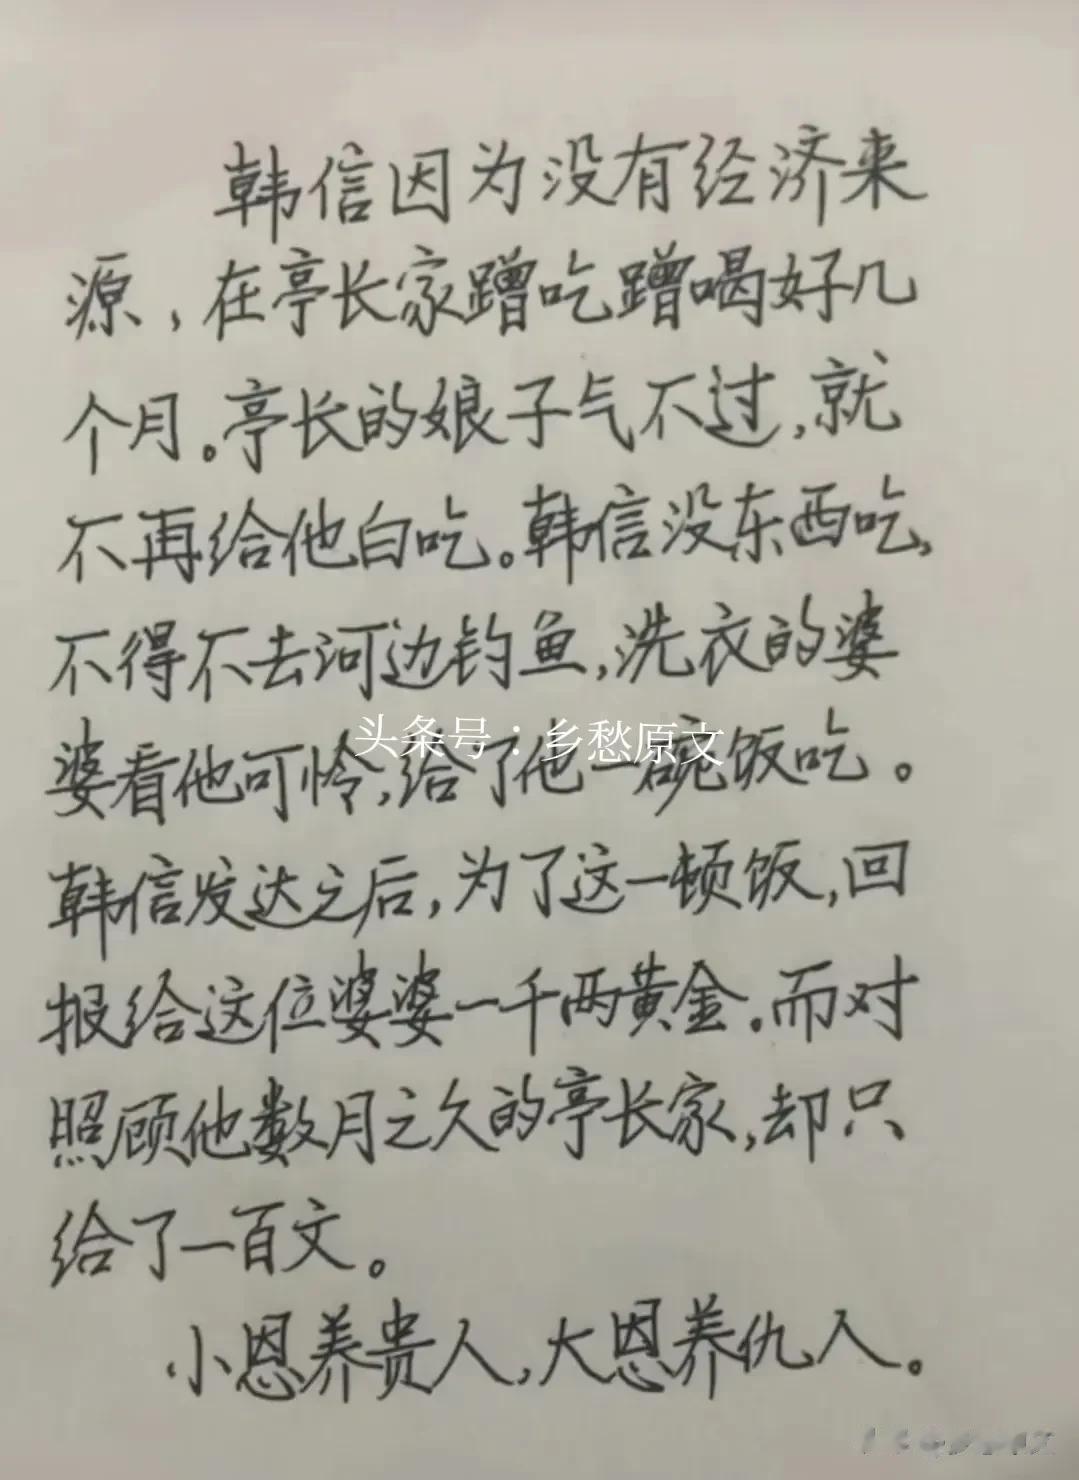 韩信因为没有经济来
源，在亭长家蹭吃蹭喝好几
个月。亭长的娘子气不过，就
不再给他白吃。韩信没东西吃，
不得不去河边钓鱼，洗衣的婆
婆看他可怜，给了他一碗饭吃。
头条号：乡愁原文
韩信发达之后，为了这一顿饭，回
报给这位婆婆一千两黄金。而对
照顾他数月之久的亭长家，却只
给了一百文。
小恩养贵人，大恩养仇人。